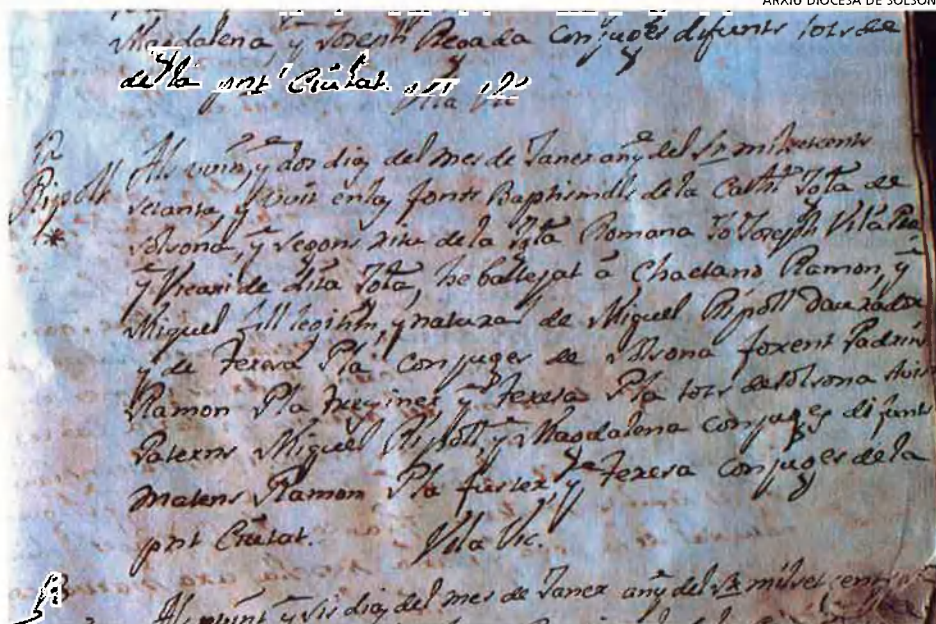 ARXIU DIOCESÀ DE SOLSON
Magdalena y Joseph Pegada Conjuges difunts tots de
de la pnt Ciutat. Vila Vic
Ripoll
Als vint y dos dias del mes de Janer any del Sr mil setcents
setanta y Vuit en las fonts Baptismals de la Cathl Iglã de
Solsona, y segons ritu de la Iglã Romana Jo Joseph Vila
y Vicari de dita Iglã, he batejat â Chaetano Ramon, y
Miguel fill legitim, y natural de Miguel Ripoll Daurador
y de Teresa Pla Conjuges de Solsona foren Padrins
Ramon Pla y Teresa Pla tots de Solsona Avis
Paterns Miguel Ripoll, y Magdalena Conjuges difunts
Materns Ramon Pla fuster, y Teresa Conjuges de la
pnt Ciutat. Vila Vic.
Als vint y sis dias del mes de Janer any del Sr mil set cents